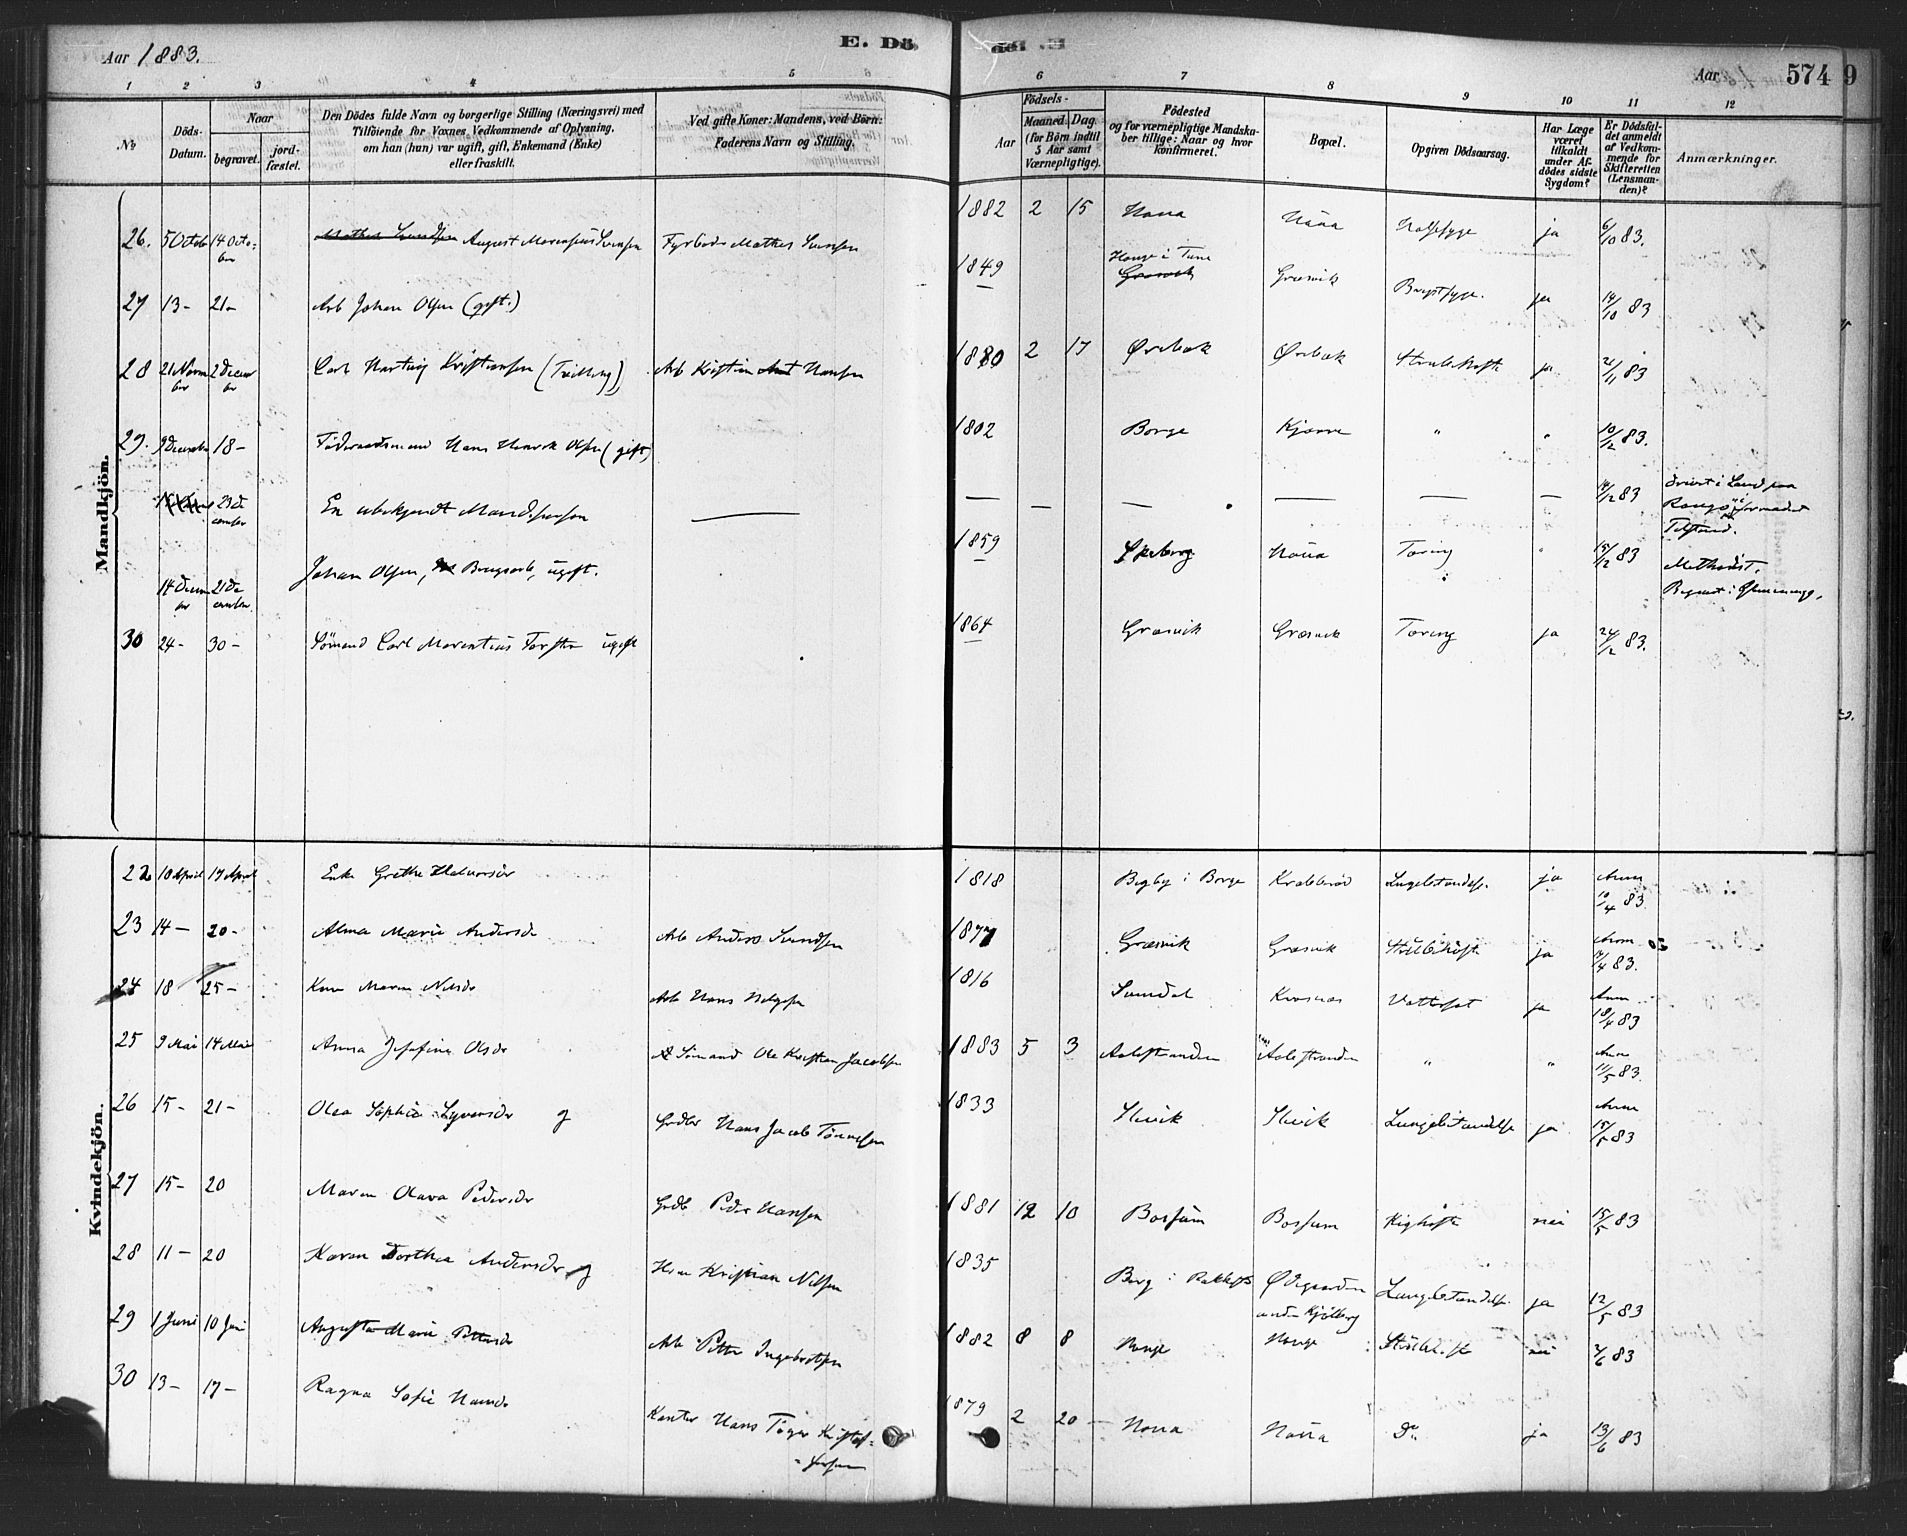 Aar 1883.
E. Dö
del .E
Aar
574 9
1 2 3 4 5 6 7 8 9 10 11 12
No
Döds-
Datum.
Naar
begravet.
jord-
fæstet.
Den Dödes fulde Navn og borgerlige Stilling (Næringsvei) med
Tilföiende for Voxnes Vedkommende af Oplysning,
om han (hun) var ugift, gift, Enkemand (Enke)
eller fraskilt.
Ved gifte Koner: Mandens, ved Börn:
Faderens Navn og Stilling.
Födsels-
Aar
Maaned. Dag.
(for Börn indtil
5 Aar samt
Værnepligtige).
Födested
og for værnepligtige Mandska-
ber tillige: Naar og hvor
konfirmeret.
Bopæl.
Opgiven Dödsaarsag.
Har Læge
været
tilkaldt
under Af-
dödes sidste
Sygdom?
Er Dödsfal-
det anmeldt
af Vedkom-
mende for
Skifteretten
(Lensman-
den)?
Anmærkninger.
Mandkjön.
26. 5 Octob 14 Octo-
ber
August Marensius Svensen Fyrböder Mathes Svensen 1882 2 15 Halssyge ja 6/10 83.
27 13- 21- Arb Johan Olsen (gift.) 1849 Hauge i Tune
Græsvik Græsvik Brystsyge. ja 14/10 83
28 21 Novm
ber 2 Decem
ber Carl Hartvig Kristiansen (Tvilling) Arb Kristian Hansen 1880 2 17 Ørebæk Ørebæk Strubehoste ja 2/11 83
29. 9 December 18- Föderaadsmand Hans Henrik Olsen (gift) 1802 Borge Kjærre " " 10/12 83.
23 De
cember En ubekjendt Mandsperson — — — — — — — 14/12 83 drevet i Land paa
Tilstand.
14 Decem
ber 21 De
cember Johan Olsen, Brugsarb, ugift. 1859 Skeberg Tæring " 15/12 83 Methodist.
Begravet i Glemminge.
30 24- 30- Sömand Carl Marentius Torsten ugift 1864 Græsvik Græsvik Tæring ja 24/12 83.
Kvindekjön.
22 10 April 17 April Enke Grethe Halvorsdr 1818 Begby i Borge Krabberöd Lungebetændelse. ja Anm
10/4 83
23 14- 20- Alma Marie Andersdr Arb Anders Svendsen 1877 Græsvik Græsvik Strubehoste ja Anm
14/4 83.
24 18 25- Kone Maren Nilsdr Arb Hans Helgesen 1816 Sundal Krosnæs Vattersot ja Anm
18/4 83
25 9 Mai 14 Mai Anna Josefine Olsdr Sömand Ole Kristian Jacobsen 1883 5 3 Aalestranden Aalestranden " " Anm
11/5 83.
26 15- 21- Olea Sophie Syversdr g Grdbr Hans Jacob Tönnesen 1833 Slevik Slevik Lungebetændelse ja Anm
15/5 83
27 15- 20 Maren Olava Pedersdr Grdb Peder Hansen 1881 12 10 Borsum Borsum Kighoste nei 15/5 83
28 11- 20 Karen Dorthea Andersdr g Kristian Nilsen 1835 Berg i Rakkestd Ødegaarden
under Kjölberg Lungebetændelse ja 12/5 83
29 1 Juni 10 Juni Augusta Marie Pettersdr Arb Petter Ingebretsen 1882 8 8 Hauge Hauge Strubehoste nei 2/6 83
30 13- 17- Ragna Sofie Hansdr Kantor Hans Töger Kristof-
fersen 1879 2 20 Do ja 13/6 83